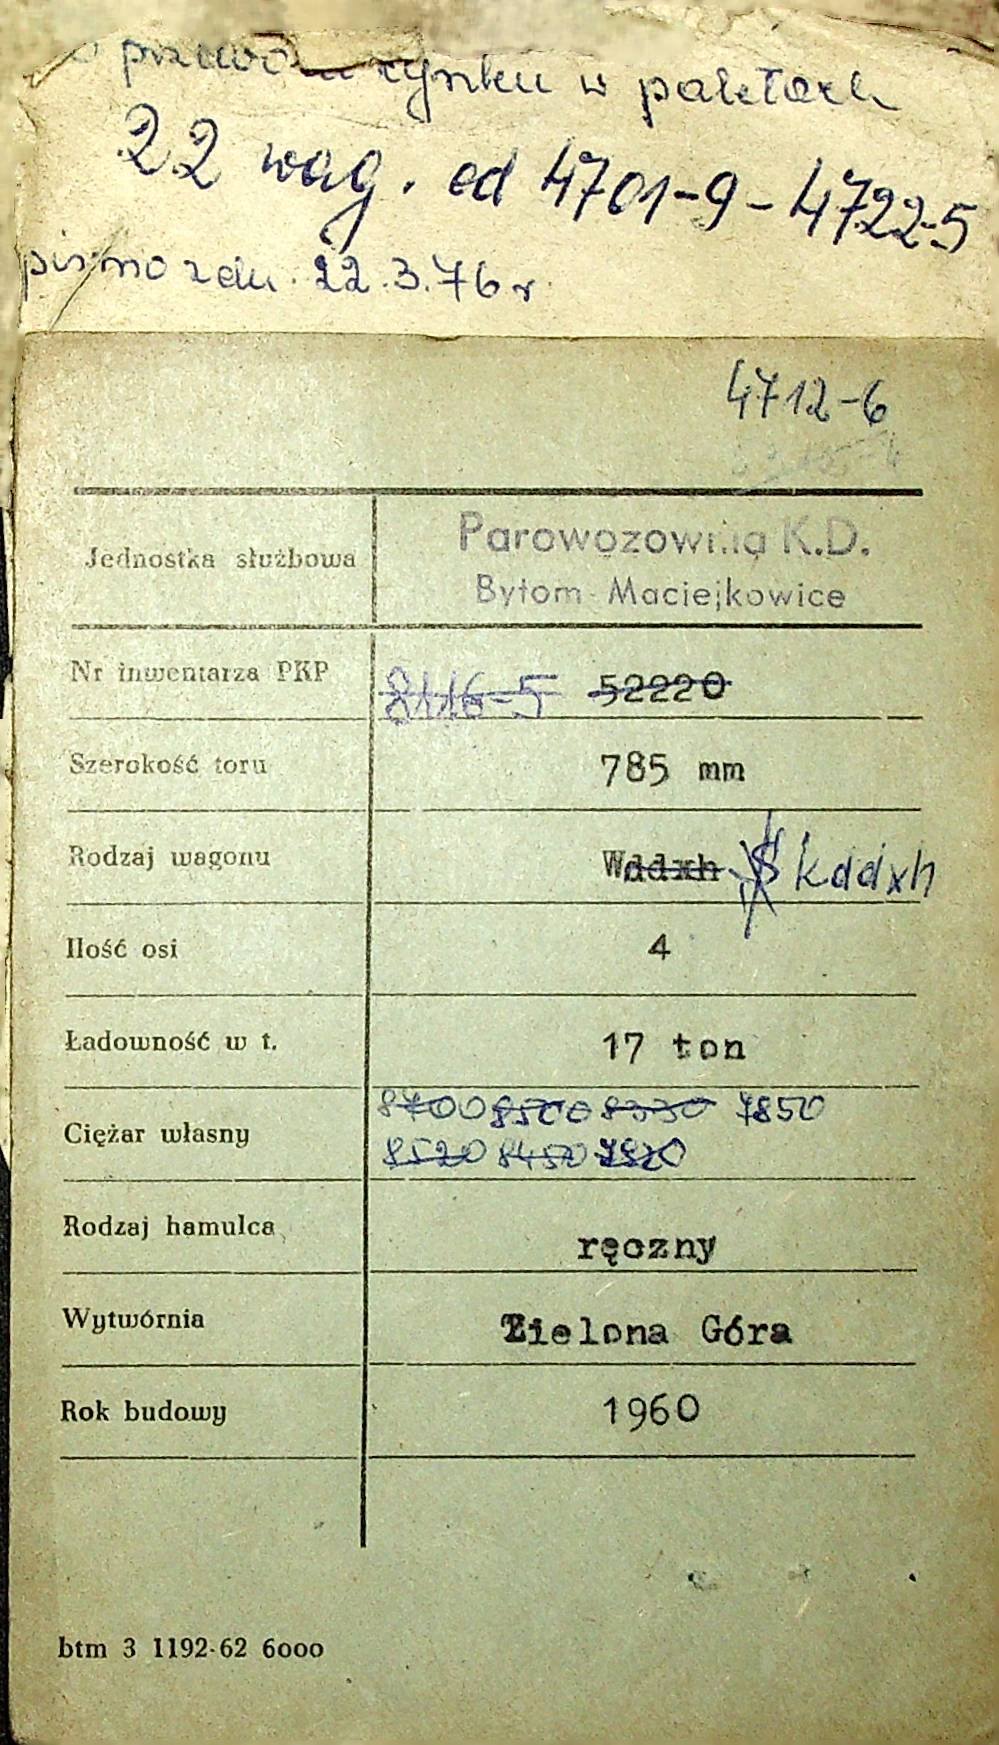 przewozu cynku w paletach
22 wag. od 4701-9 - 4722-5
pismo z dn. 22.3.76 r
4712-6
Jednostka służbowa Parowozownia K.D.
Bytom Maciejkowice
Nr inwentarza PKP 8116-5 52220
Szerokość toru 785 mm
Rodzaj wagonu Wddxh Skddxh
Ilość osi 4
Ładowność w t. 17 ton
Ciężar własny 8700 8500 8330 7850
8520 8450 7920
Rodzaj hamulca ręczny
Wytwórnia Zielona Góra
Rok budowy 1960
btm 3 1192-62 6000